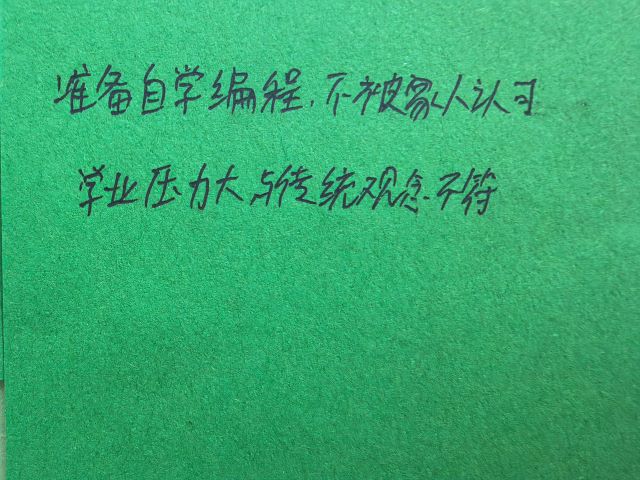 准备自学编程,不被家人认可
学业压力大,与传统观念不符